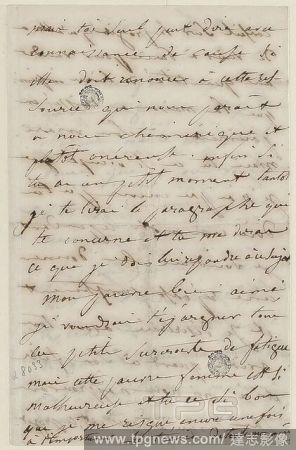 pour toi seul peut dire en
connaissance de cause si
elle doit renoncer à cette res
source qui nous paraît
à nous chimérique et
plutôt onéreuse. enfin si
tu as un petit moment tantôt
je te lirai le paragraphe qui
te concerne et tu me diras
ce que je dois lui répondre à ce sujet
mon pauvre bien aimé
je voudrais t'épargner
petite surcroîte de fatigue
mais cette pauvre femme est si
malheureuse et tu es si bon
que je me risque encore une fois
à t'importuner
8033
TPG
www.tpgnews.com/達志影像